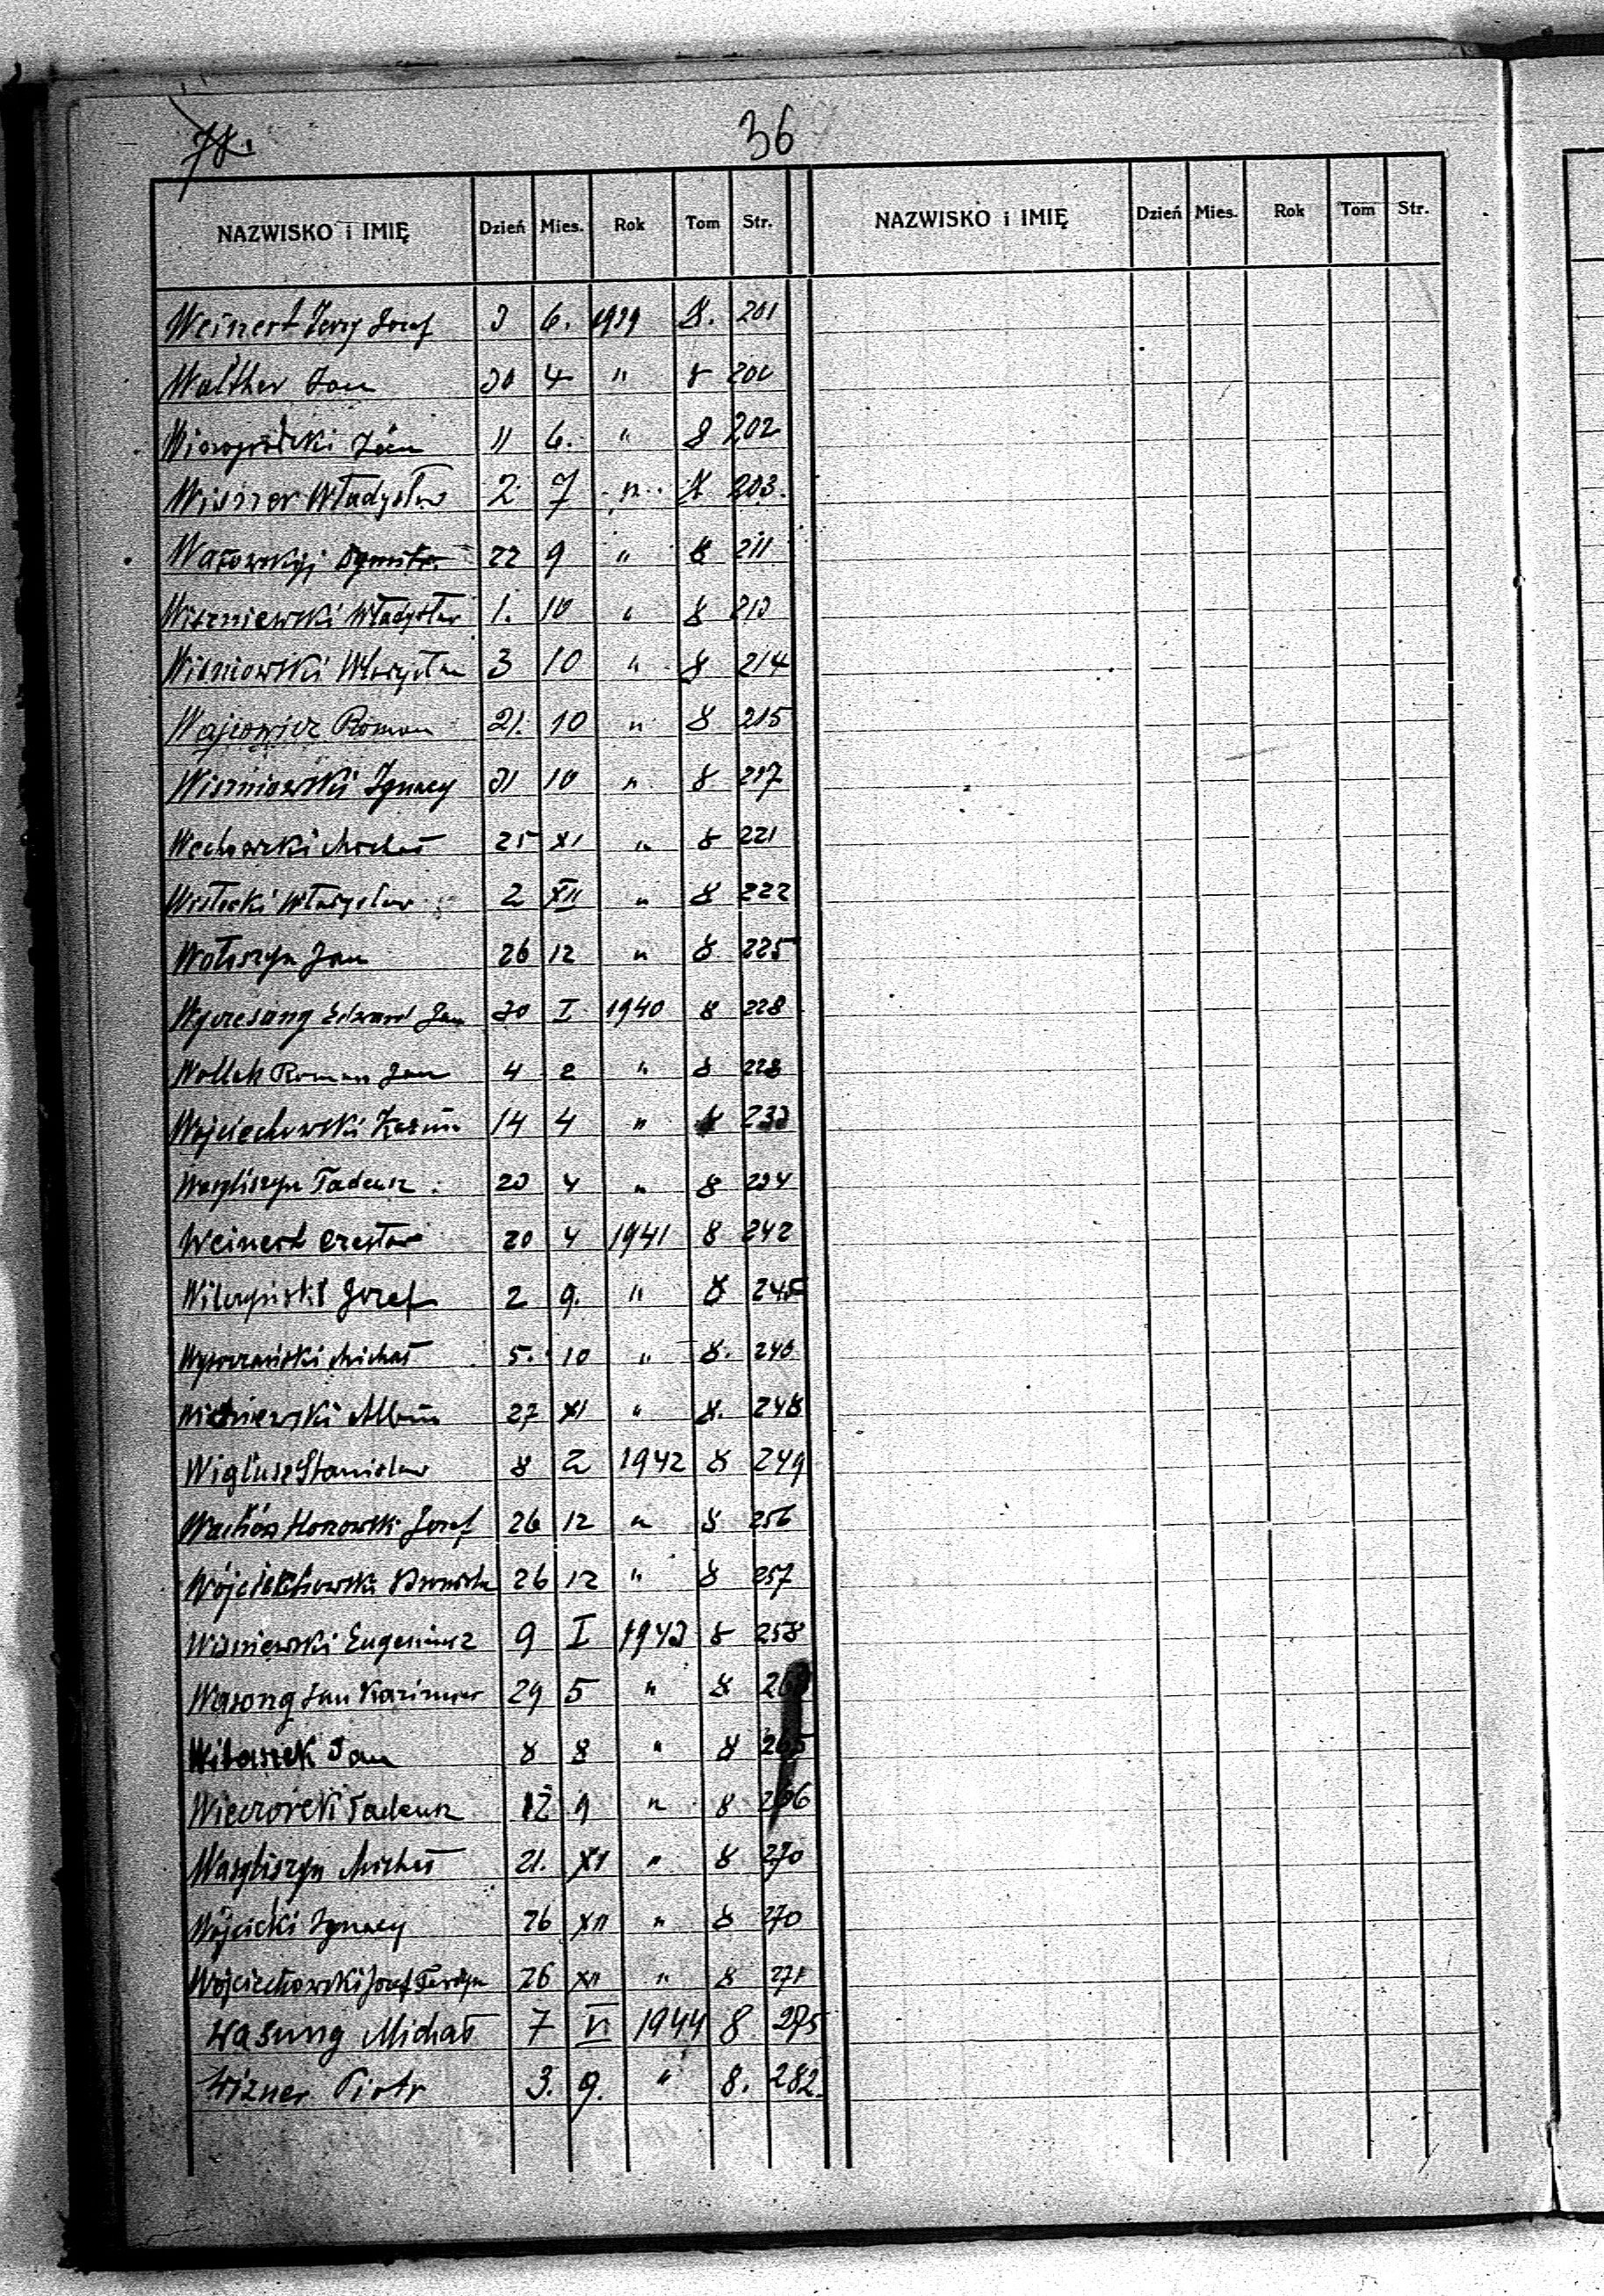 78. 36
NAZWISKO i IMIĘ Dzień Mies. Rok Tom Str. NAZWISKO i IMIĘ Dzień Mies. Rok Tom Str.
Weinert Jerzy Józef 3 6. 1939 8. 201
Walther Jan 30 4 " 8 200
Winogrodzki Jan 11 6. " 8 202
Wiszner Władysław 2 7 " 8 203.
22 9 " 8 211
Wiszniewski Władysław 1. 10 " 8 213
Wiśniowski 3 10 " 8 214
Wajcowicz Roman 21. 10 " 8 215
Wiszniowski Ignacy 31 10 " 8 217
Michał 25 XI " 8 221
Władysław 2 XII " 8 222
Wołoszyn Jan 26 12 " 8 225
Edward Jan 30 I 1940 8 228
Wollek Roman Jan 4 2 " 8 228
Wojciechowski Kazim 14 4 " 8 233
Wasyliszyn Tadeusz 23 4 " 8 234
Weinert Czesław 20 4 1941 8 242
Wilczyński Józef 2 9. " 8 245
Wysoczański Michał 5. 10 " 8. 246
Wiśniewski Albin 27 XI " 8. 248
Wigłusz Stanisław 8 2 1942 8 249
Józef 26 12 " 8 256
Wójciechowski 26 12 " 8 257
Wiśniewski Eugeniusz 9 I 1943 8 258
Wasong Jan Kazimier 29 5 " 8
Witaszek Jan 8 8 " 8 265
Wieczorek Tadeusz 12 9 " 8 266
Wasyliszyn Michał 21. XI " 8 270
Wójcicki Ignacy 26 XII " 8 270
Wojciechowski Józef 26 XII " 8 271
Wasung Michał 7 VI 1944 8 275
Wizner Piotr 3. 9. " 8. 282.